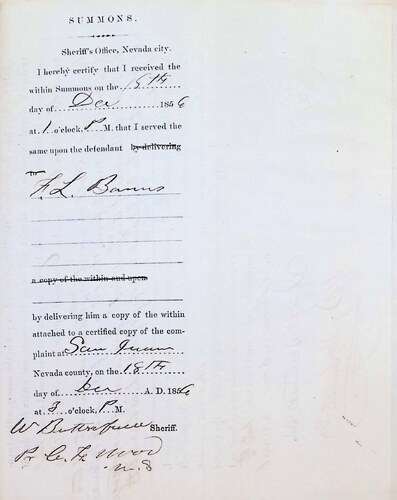 SUMMONS.
Sheriff's Office, Nevada city.
I hereby certify that I received the
within Summons on the 18th
day of Dec 1856
at 1 o'clock, P. M. that I served the
same upon the defendant by delivering
to
F. L. Barnes
a copy of the within and upon
by delivering him a copy of the within
attached to a certified copy of the com-
plaint at San Juan
Nevada county, on the 18th
day of Dec A. D. 1856
at 3 o'clock, P. M.
W Butterfield Sheriff.
Pr C. F. Wood
U. S